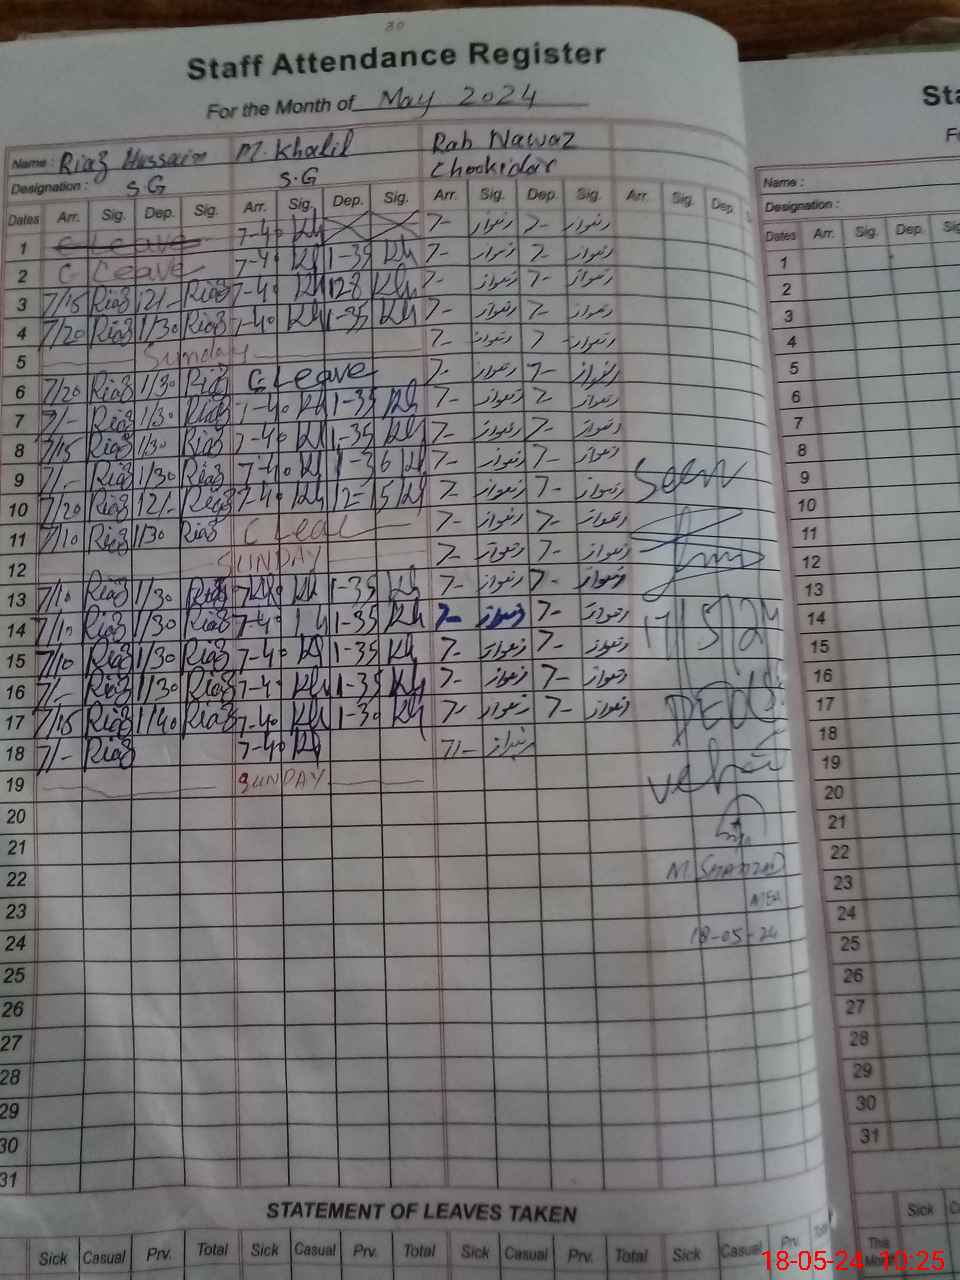 30
Staff Attendance Register
For the Month of May 2024
Name : Riaz Hussain M. Khalil Rab Nawaz
Designation : S G S.G Chookidar
Dates Arr. Sig. Dep. Sig. Arr. Sig. Dep. Sig. Arr. Sig. Dep. Sig. Arr. Sig. Dep.
1 C Leave 7-40 Kh 7- رنواز 7- رنواز
2 C Leave 7-40 Kh 1-35 Kh 7- رنواز 7- رنواز
3 7/15 Riaz 12/- Riaz 7-40 Kh Kh 7- رنواز 7- رنواز
4 7/20 Riaz 1/30 Riaz 7-40 Kh 1-35 Kh 7- رنواز 7- رنواز
5 Sunday 7- رنواز 7 رنواز
6 7/20 Riaz 1/30 Riaz C Leave 7- رنواز 7- رنواز
7 7/- Riaz 1/30 Riaz 7-40 Kh 1-35 Kh 7- رنواز 7- رنواز
8 7/15 Riaz 1/30 Riaz 7-40 Kh 1-35 Kh 7- رنواز 7- رنواز
9 7/- Riaz 1/30 Riaz 7-40 Kh 1-36 Kh 7- رنواز 7- رنواز
10 7/20 Riaz 12/- Riaz 7-40 Kh Kh 7- رنواز 7- رنواز
11 7/10 Riaz 1/30 Riaz C Lea 7- رنواز 7- رنواز
12 SUNDAY 7- رنواز 7- رنواز
13 7/10 Riaz 1/30 Riaz Kh 1-35 Kh 7- رنواز 7- رنواز
14 7/10 Riaz 1/30 Riaz 7-40 1-35 Kh 7- رنواز 7- رنواز
15 7/10 Riaz 1/30 Riaz 7-40 Kh 1-35 Kh 7- رنواز 7- رنواز
16 7/- Riaz 1/30 Riaz 7-40 Kh 1-35 Kh 7- رنواز 7- رنواز
17 7/15 Riaz 1/40 Riaz 7-40 Kh 1-30 Kh 7- رنواز 7- رنواز
18 7/- Riaz 7-40 Kh 7/- رنواز
19 SUNDAY
20
21
22
23
24
25
26
27
28
29
30
31
Seen
17/5/24
M. SHAHZAD
MEA
18-05-24
STATEMENT OF LEAVES TAKEN
Sick Casual Prv. Total Sick Casual Prv. Total Sick Casual Prv. Total Sick Casual Prv. Total
Sta
F
Name :
Designation :
Dates Arr. Sig. Dep. Sig
1
2
3
4
5
6
7
8
9
10
11
12
13
14
15
16
17
18
19
20
21
22
23
24
25
26
27
28
29
30
31
Sick
This
18-05-24 10:25